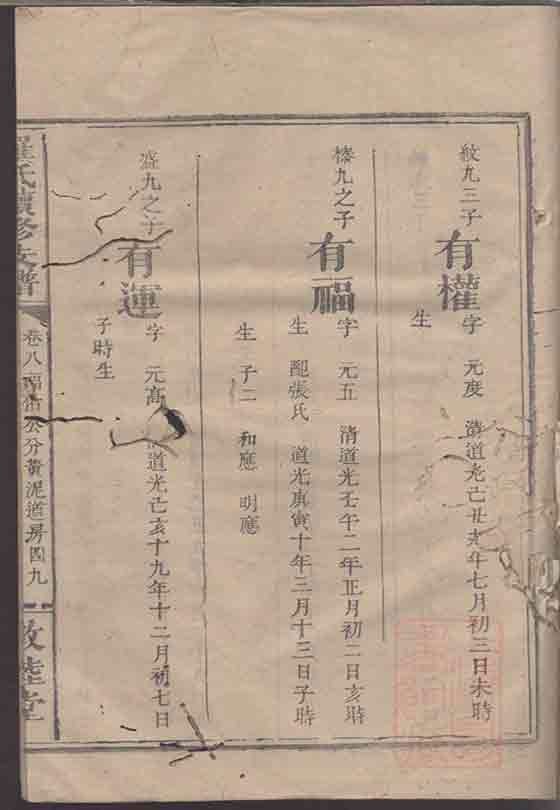 紋九三子
有權
字 元度 清道光己丑九年七月初三日未時
生
榛九之子
有福
字 元五 清道光壬午二年正月初二日亥時
生 配張氏 道光庚寅十年三月十三日子時
生 子二 和應 明應
盛九之子
有運
字 元高 道光己亥十九年十二月初七日
子時生
氏續修支譜
卷八福 公分黃泥道房四九
敦睦堂